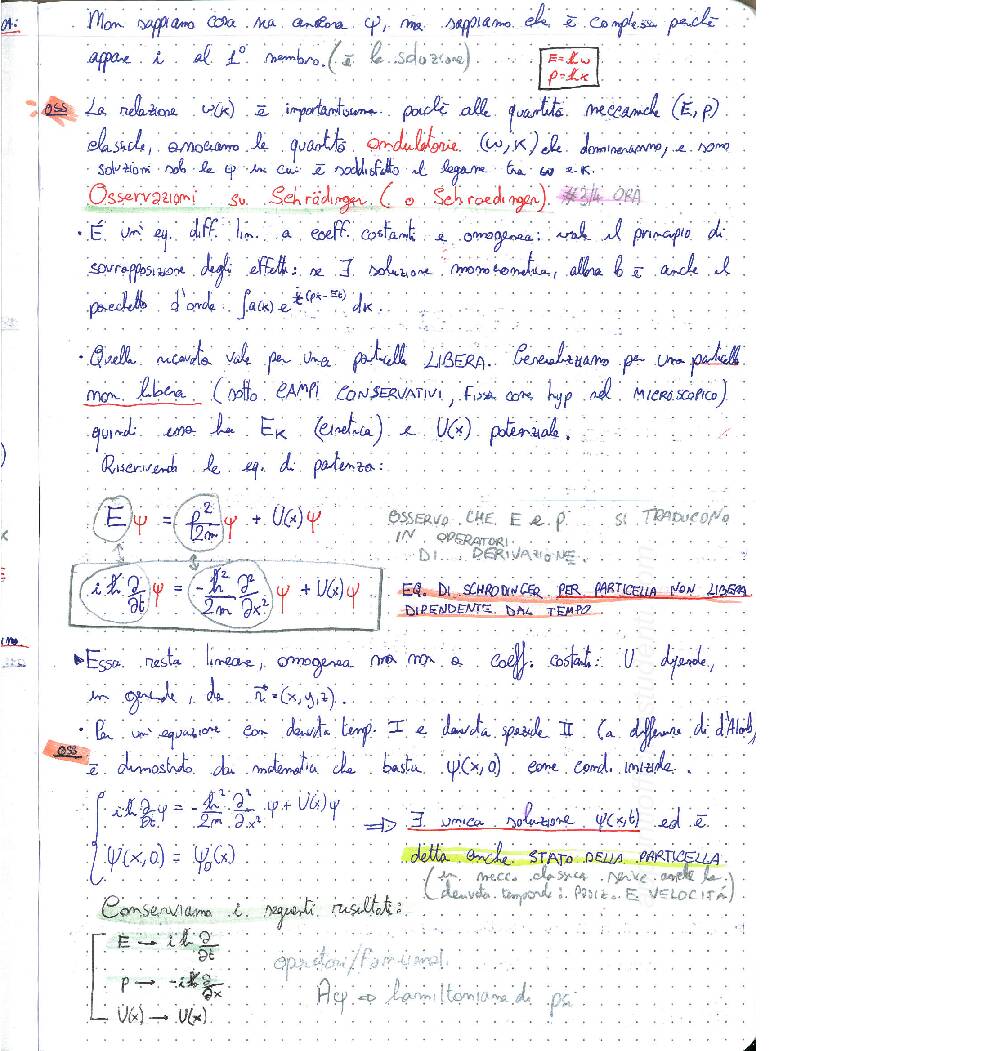 Non sappiamo cosa sia ancora φ, ma sappiamo che è complessa perché
appare i al 1° membro. (è la soluzione)
E=ħω
p=ħk
OSS La relazione ω(k) è importantissima poiché alle quantità meccaniche (E,p)
classiche, associamo le quantità ondulatorie (ω,k) che domineranno, e sono
soluzioni solo le φ in cui è soddisfatto il legame tra ω e k.
Osservazioni su Schrödinger (o Schroedinger) #3/4 ORA
• È un'eq. diff. lin. a coeff. costanti e omogenea: vale il principio di
sovrapposizione degli effetti: se ∃ soluzione monocromatica, allora lo è anche il
pacchetto d'onde ∫a(k) e^{i/ħ(px-Et)} dk.
• Quella ricavata vale per una particella LIBERA. Generalizziamo per una particella
non libera (sotto CAMPI CONSERVATIVI, fissa come hyp nel MICROSCOPICO)
quindi essa ha E_K (cinetica) e U(x) potenziale.
Riscrivendo le eq. di partenza:
Eψ = p²/2m ψ + U(x)ψ OSSERVO CHE E e p SI TRADUCONO
IN OPERATORI
DI DERIVAZIONE.
iħ ∂/∂t ψ = -ħ²/2m ∂²/∂x² ψ + U(x)ψ EQ. DI SCHRODINGER PER PARTICELLA NON LIBERA
DIPENDENTE DAL TEMPO
Essa resta lineare, omogenea ma non a coeff. costanti: U dipende,
in generale, da r⃗=(x,y,z).
• Per un'equazione con derivata temp. I e derivata spaziale II (a differenza di d'Alemb,
OSS è dimostrato da matematica che basta ψ(x,0) come cond. iniziale.
{ iħ ∂/∂t φ = -ħ²/2m ∂²/∂x² φ + U(x)φ
ψ(x,0) = ψ₀(x)
⇒ ∃ unica soluzione ψ(x,t) ed è
detta anche STATO DELLA PARTICELLA
(in mecc. classica serve anche la
derivata temporale: POSIZ. E VELOCITÀ)
Conserviamo i seguenti risultati:
E → iħ ∂/∂t
p → -iħ ∂/∂x
U(x) → U(x)
operatori/funzionali
hamiltoniana di psi